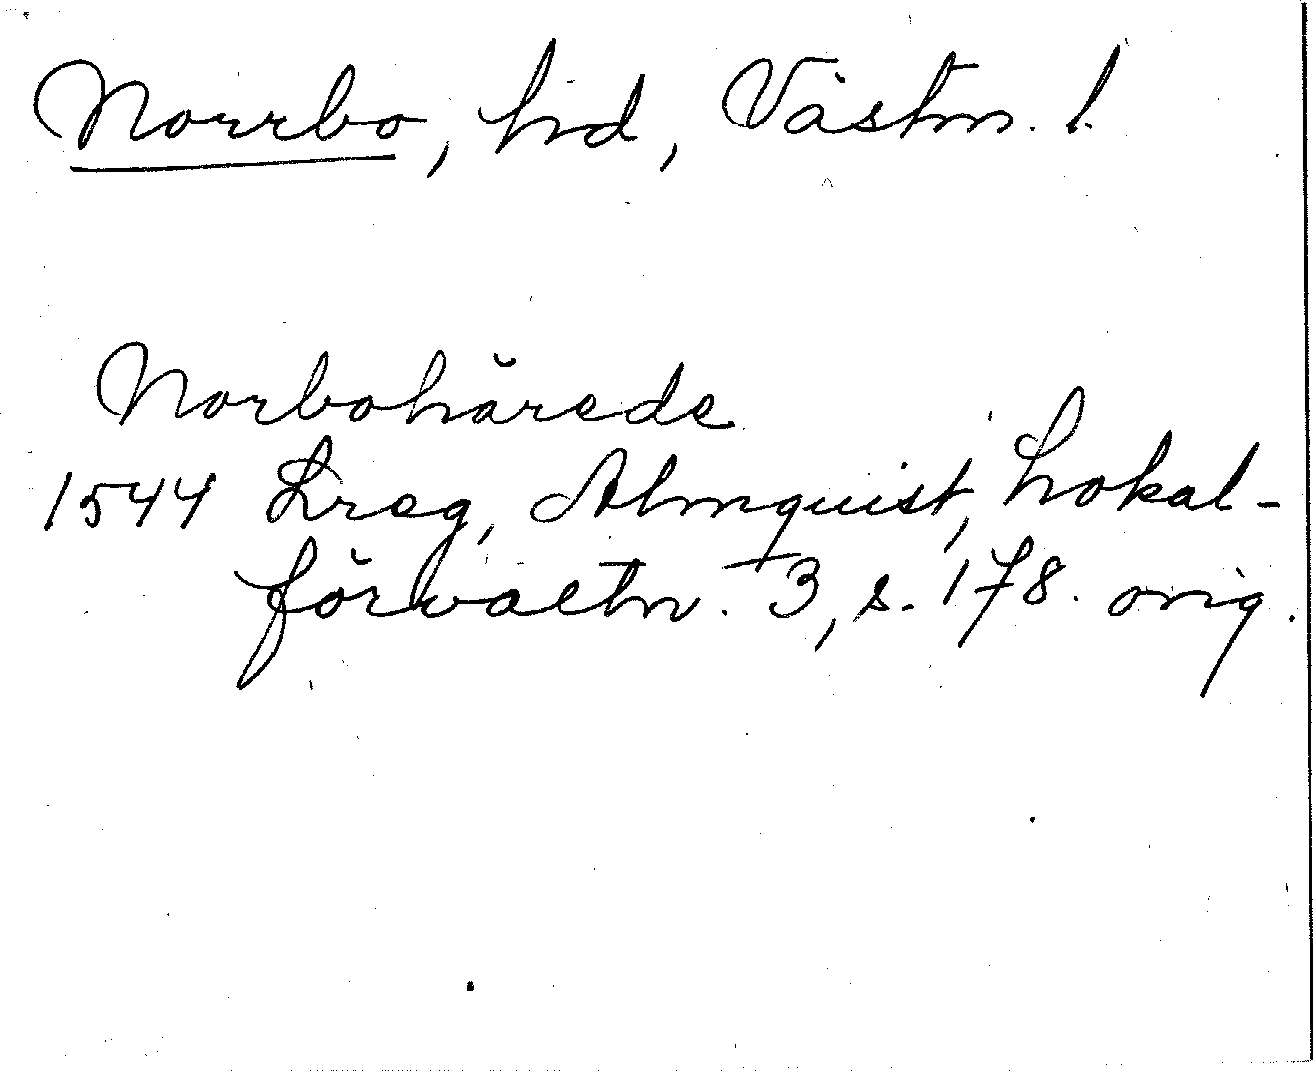 Norrbo, hd, Västm. l.
Norbohärede
1544 Lreg, Almquist, Lokal-
förvaltn. 3, s. 178. orig.